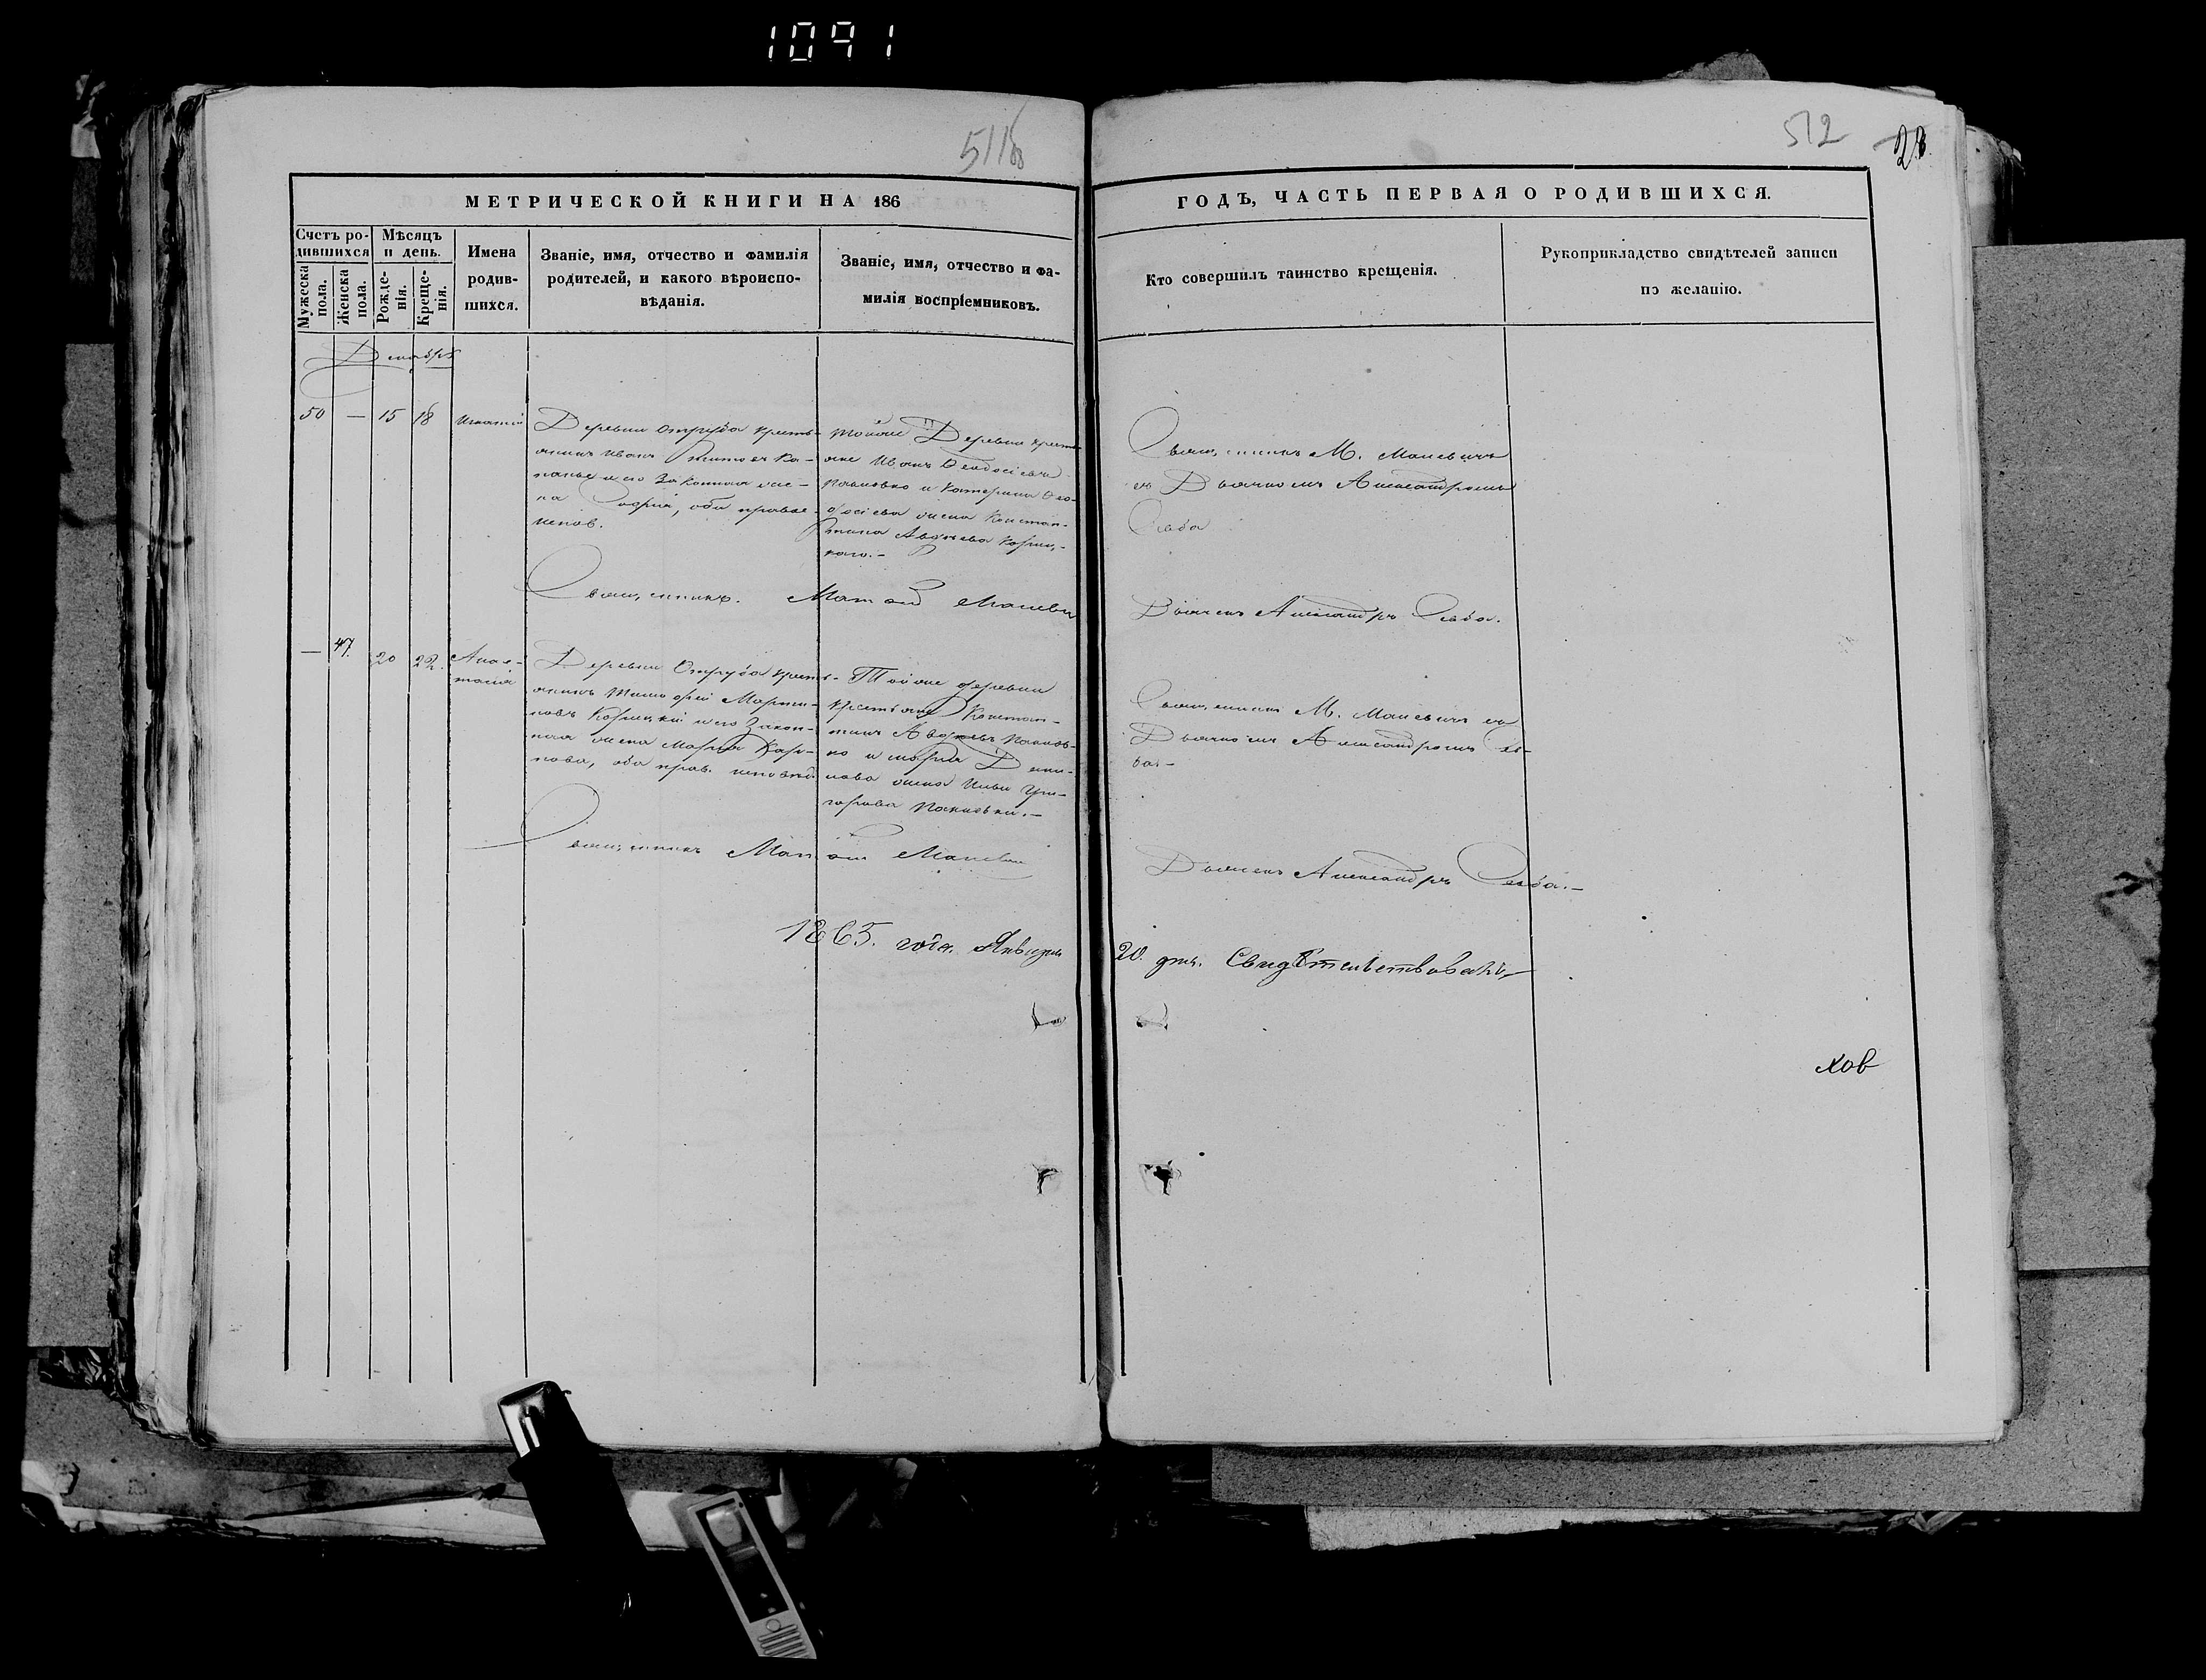 1091
511 об
512
28
МЕТРИЧЕСКОЙ КНИГИ НА 186
ГОДЪ, ЧАСТЬ ПЕРВАЯ О РОДИВШИХСЯ.
Счетъ родившихся
Мужеска пола.
Женска пола.
Мѣсяцъ и день.
Рожденія.
Крещенія.
Имена
родив-
шихся.
Званіе, имя, отчество и фамилія
родителей, и какого вѣроиспо-
вѣданія.
Званіе, имя, отчество и фа-
милія воспріемниковъ.
Кто совершилъ таинство крещенія.
Рукоприкладство свидѣтелей записи
по желанію.
Декабрь
50 — 15 18 Игнатій
Деревни Отруба кресть-
янинъ Иванъ
и его законная же-
на Софія, оба правос-
лавно.
тойже Деревни кресть-
яне Иванъ Феодосіевъ
и Катерина Ѳео-
досіева жена Констан-
тина Авдѣева
Священникъ М. Маневичъ
съ Дьячкомъ Александромъ
Священникъ Матѳей Маневичъ
Дьячекъ Александръ
— 47. 20 22. Анас-
тасія
Деревни Отруба кресть-
янинъ Тимоѳей Марти-
новъ и его закон-
ная жена Марія Кар-
пова, оба прав. исповѣд.
Тойже деревни
крестьяне Констан-
тинъ Авдѣевъ
и Марія Дани-
лова жена Ильи Гри-
горьева
Священникъ М. Маневичъ съ
Дьячкомъ Александромъ
Священникъ Матѳей Маневичъ
Дьячекъ Александръ
1865. года. Января 20. дня. Свидѣтельствовалъ
ков